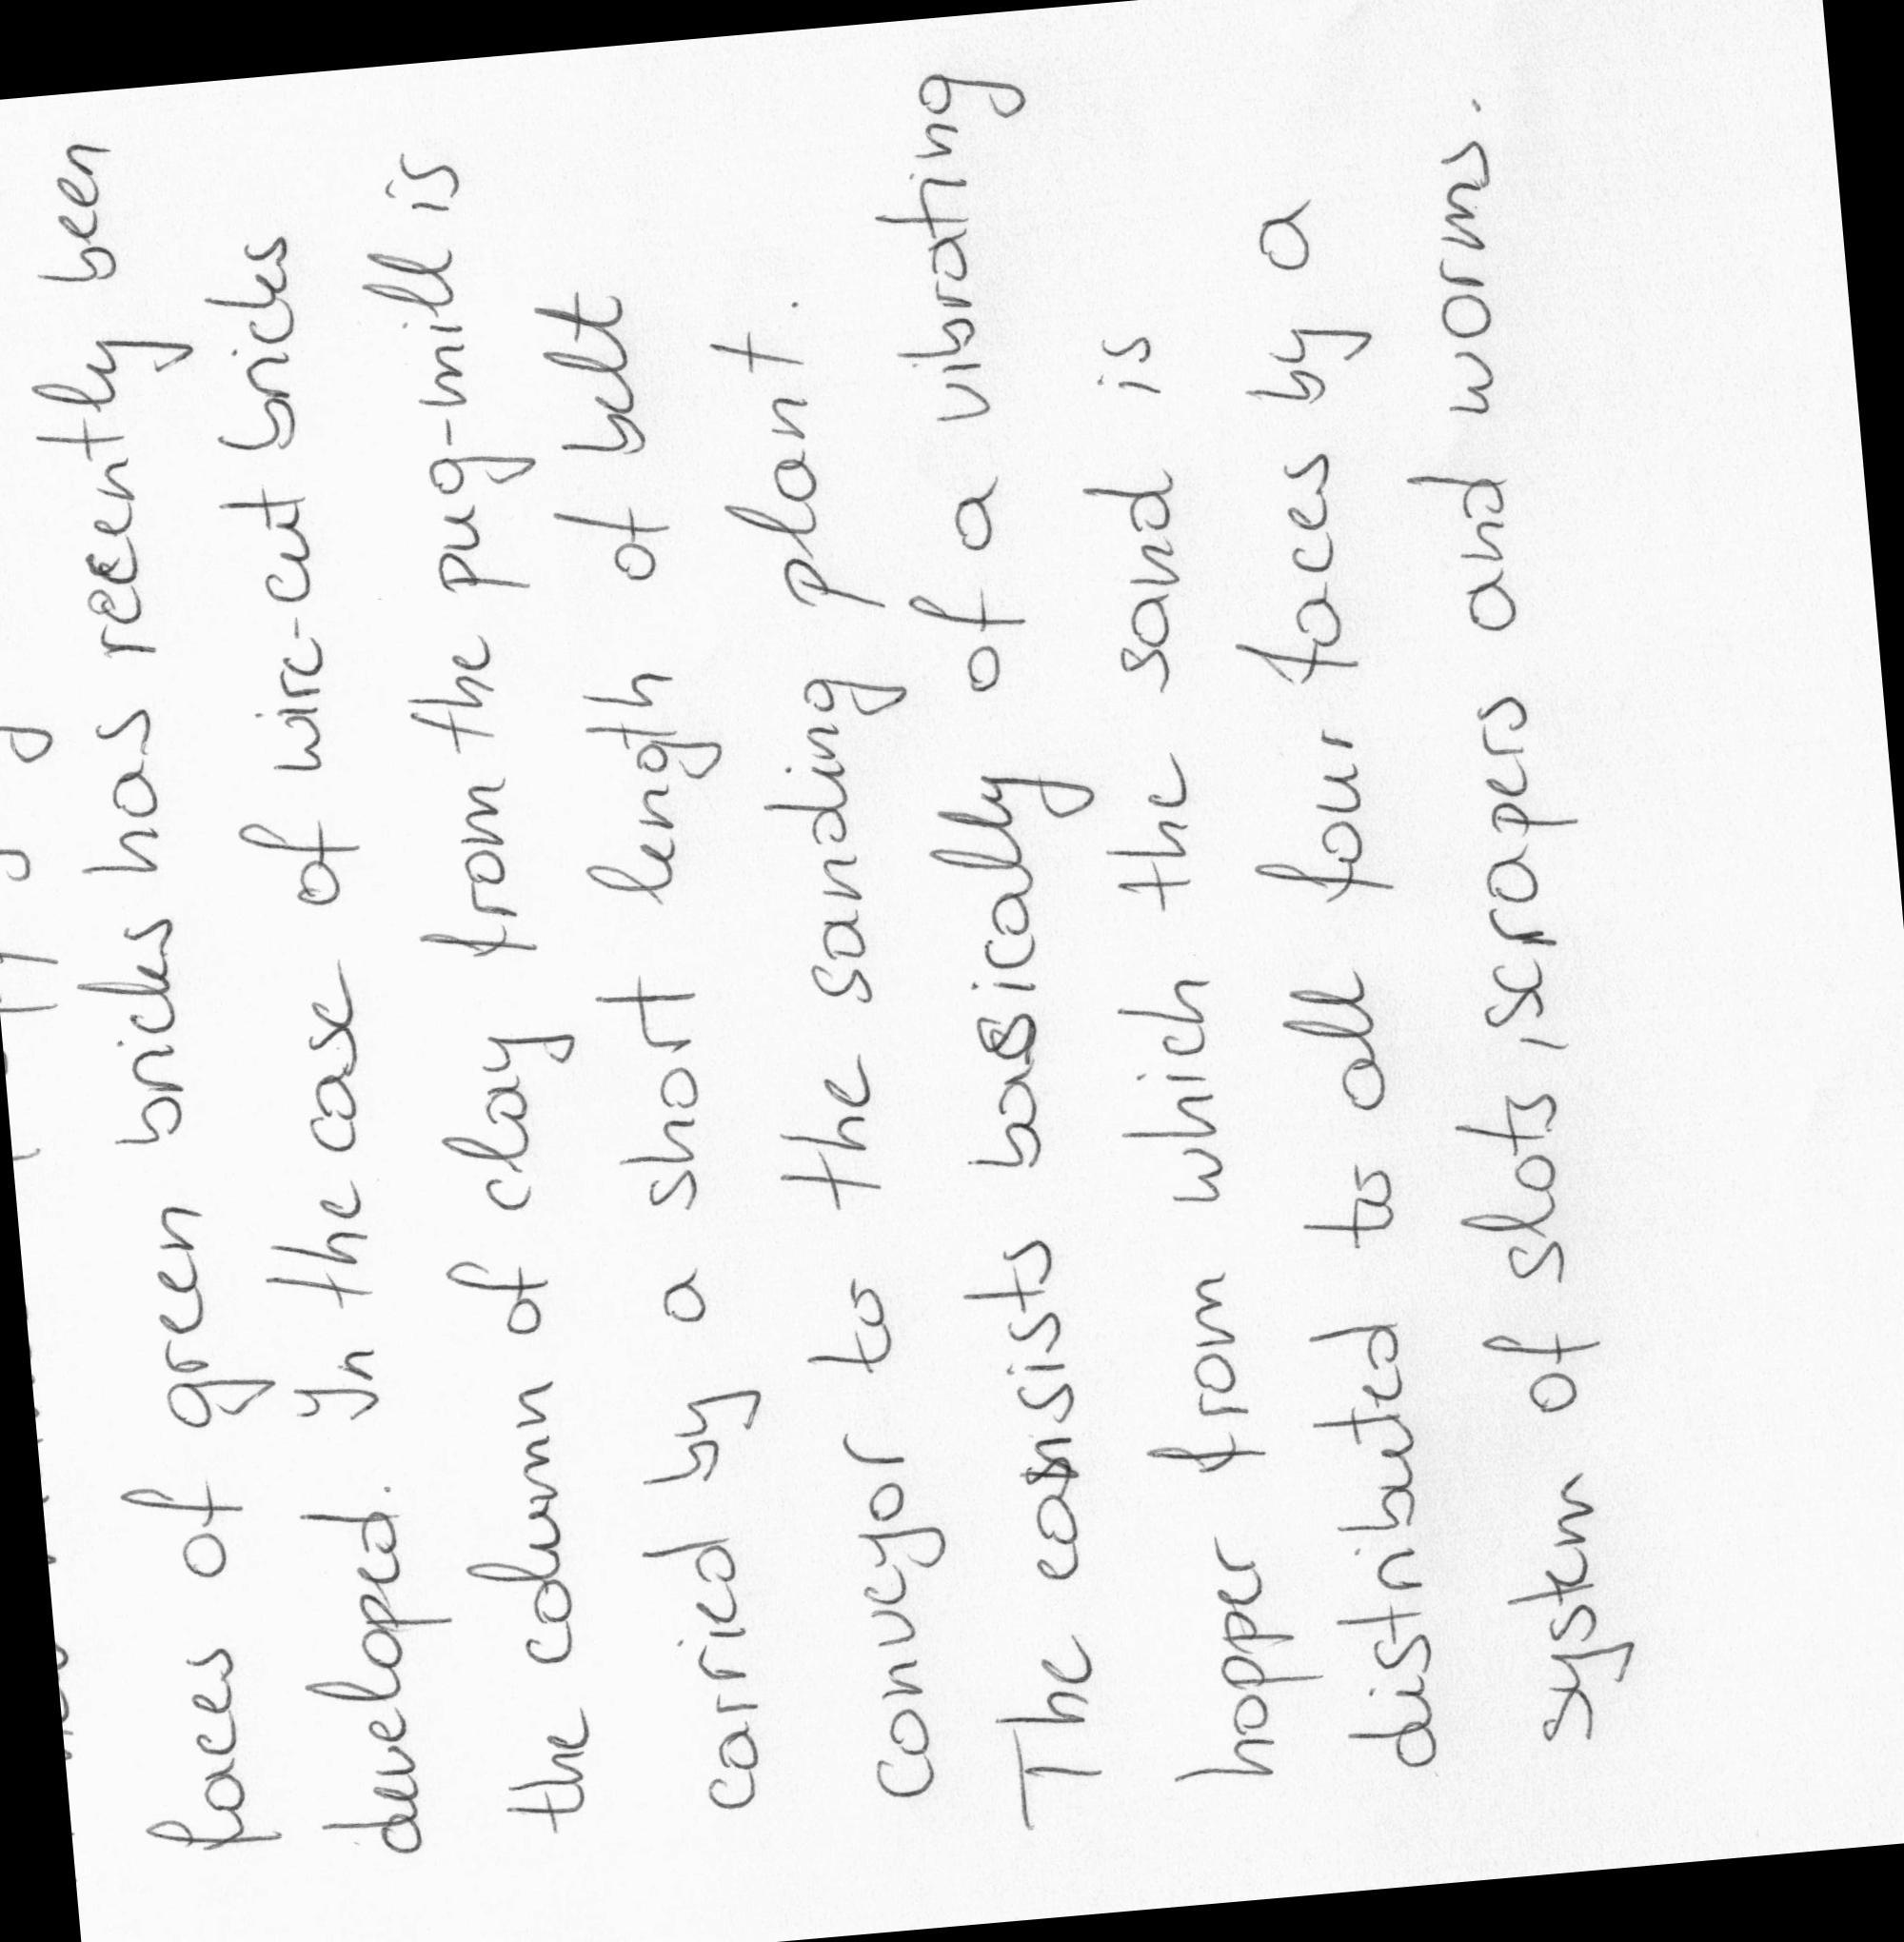 faces of green bricks has recently been
developed. In the case of wire-cut bricks
the column of clay from the pug-mill is
carried by a short length of belt
conveyor to the sanding plant.
The consists basically of a vibrating
hopper from which the sand is
distributed to all four faces by a
system of slots, scrapers and worms.